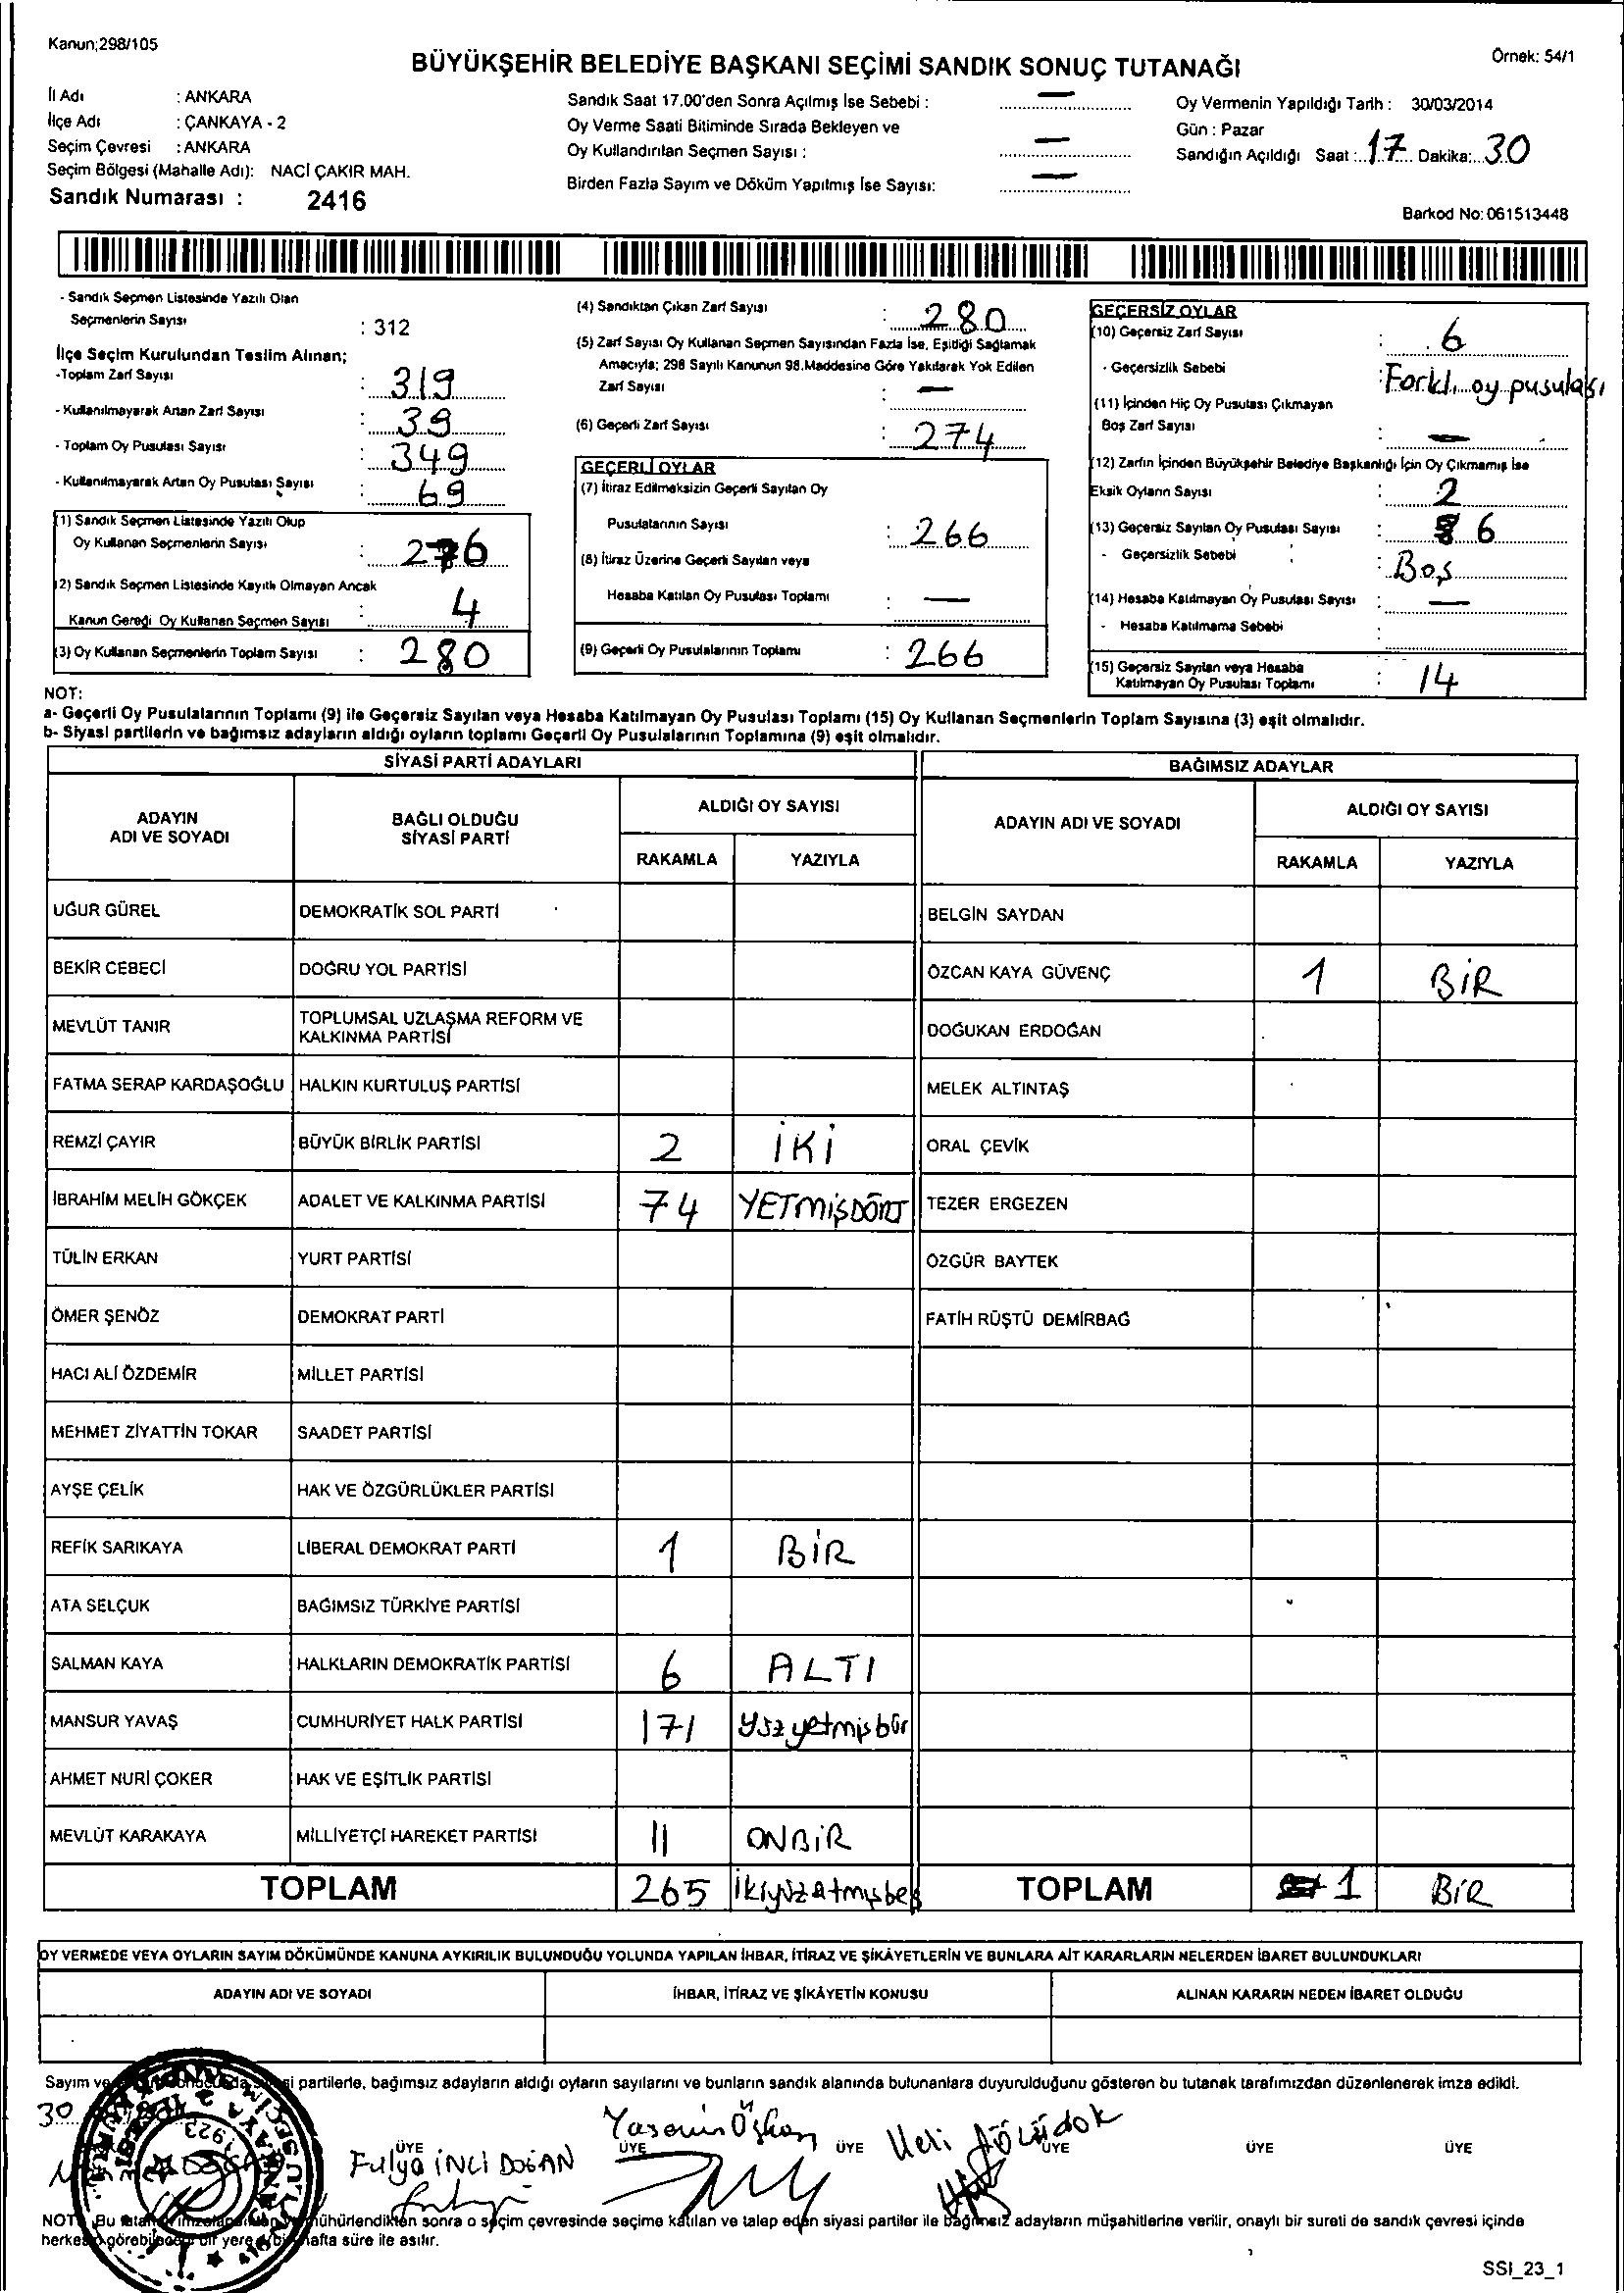 Kanun;298/105
BÜYÜKŞEHİR BELEDİYE BAŞKANI SEÇİMİ SANDIK SONUÇ TUTANAĞI
Örnek: 54/1
İl Adı : ANKARA
İlçe Adı : ÇANKAYA - 2
Seçim Çevresi : ANKARA
Seçim Bölgesi (Mahalle Adı): NACİ ÇAKIR MAH.
Sandık Numarası : 2416
Sandık Saat 17.00'den Sonra Açılmış İse Sebebi : —
Oy Verme Saati Bitiminde Sırada Bekleyen ve
Oy Kullandırılan Seçmen Sayısı : —
Birden Fazla Sayım ve Döküm Yapılmış İse Sayısı: —
Oy Vermenin Yapıldığı Tarih : 30/03/2014
Gün : Pazar
Sandığın Açıldığı Saat : 17 Dakika: 30
Barkod No: 061513448
- Sandık Seçmen Listesinde Yazılı Olan
Seçmenlerin Sayısı : 312
İlçe Seçim Kurulundan Teslim Alınan;
-Toplam Zarf Sayısı : 319
- Kullanılmayarak Artan Zarf Sayısı : 39
- Toplam Oy Pusulası Sayısı : 349
- Kullanılmayarak Artan Oy Pusulası Sayısı : 69
(1) Sandık Seçmen Listesinde Yazılı Olup
Oy Kullanan Seçmenlerin Sayısı : 276
(2) Sandık Seçmen Listesinde Kayıtlı Olmayan Ancak
Kanun Gereği Oy Kullanan Seçmen Sayısı : 4
(3) Oy Kullanan Seçmenlerin Toplam Sayısı : 280
(4) Sandıktan Çıkan Zarf Sayısı : 280
(5) Zarf Sayısı Oy Kullanan Seçmen Sayısından Fazla İse, Eşitliği Sağlamak
Amacıyla; 298 Sayılı Kanunun 98.Maddesine Göre Yakılarak Yok Edilen
Zarf Sayısı : —
(6) Geçerli Zarf Sayısı : 274
GEÇERLİ OYLAR
(7) İtiraz Edilmeksizin Geçerli Sayılan Oy
Pusulalarının Sayısı : 266
(8) İtiraz Üzerine Geçerli Sayılan veya
Hesaba Katılan Oy Pusulası Toplamı : —
(9) Geçerli Oy Pusulalarının Toplamı : 266
GEÇERSİZ OYLAR
(10) Geçersiz Zarf Sayısı : 6
- Geçersizlik Sebebi : Farklı oy pusulası
(11) İçinden Hiç Oy Pusulası Çıkmayan
Boş Zarf Sayısı : —
(12) Zarfın İçinden Büyükşehir Belediye Başkanlığı İçin Oy Çıkmamış İse
Eksik Oyların Sayısı : 2
(13) Geçersiz Sayılan Oy Pusulası Sayısı : 6
- Geçersizlik Sebebi : Boş
(14) Hesaba Katılmayan Oy Pusulası Sayısı : —
- Hesaba Katılmama Sebebi :
(15) Geçersiz Sayılan veya Hesaba
Katılmayan Oy Pusulası Toplamı : 14
NOT:
a- Geçerli Oy Pusulalarının Toplamı (9) ile Geçersiz Sayılan veya Hesaba Katılmayan Oy Pusulası Toplamı (15) Oy Kullanan Seçmenlerin Toplam Sayısına (3) eşit olmalıdır.
b- Siyasi partilerin ve bağımsız adayların aldığı oyların toplamı Geçerli Oy Pusulalarının Toplamına (9) eşit olmalıdır.
SİYASİ PARTİ ADAYLARI
BAĞIMSIZ ADAYLAR
ADAYIN ADI VE SOYADI
BAĞLI OLDUĞU SİYASİ PARTİ
ALDIĞI OY SAYISI
RAKAMLA YAZIYLA
ADAYIN ADI VE SOYADI
ALDIĞI OY SAYISI
RAKAMLA YAZIYLA
UĞUR GÜREL DEMOKRATİK SOL PARTİ BELGİN SAYDAN
BEKİR CEBECİ DOĞRU YOL PARTİSİ ÖZCAN KAYA GÜVENÇ 1 BİR
MEVLÜT TANIR TOPLUMSAL UZLAŞMA REFORM VE KALKINMA PARTİSİ DOĞUKAN ERDOĞAN
FATMA SERAP KARDAŞOĞLU HALKIN KURTULUŞ PARTİSİ MELEK ALTINTAŞ
REMZİ ÇAYIR BÜYÜK BİRLİK PARTİSİ 2 İKİ ORAL ÇEVİK
İBRAHİM MELİH GÖKÇEK ADALET VE KALKINMA PARTİSİ 74 YETMİŞDÖRT TEZER ERGEZEN
TÜLİN ERKAN YURT PARTİSİ ÖZGÜR BAYTEK
ÖMER ŞENÖZ DEMOKRAT PARTİ FATİH RÜŞTÜ DEMİRBAĞ
HACI ALİ ÖZDEMİR MİLLET PARTİSİ
MEHMET ZİYATTİN TOKAR SAADET PARTİSİ
AYŞE ÇELİK HAK VE ÖZGÜRLÜKLER PARTİSİ
REFİK SARIKAYA LİBERAL DEMOKRAT PARTİ 1 BİR
ATA SELÇUK BAĞIMSIZ TÜRKİYE PARTİSİ
SALMAN KAYA HALKLARIN DEMOKRATİK PARTİSİ 6 ALTI
MANSUR YAVAŞ CUMHURİYET HALK PARTİSİ 171 yüzyetmişbir
AHMET NURİ ÇOKER HAK VE EŞİTLİK PARTİSİ
MEVLÜT KARAKAYA MİLLİYETÇİ HAREKET PARTİSİ 11 ONBİR
TOPLAM 265 İkiyüzatmışbeş TOPLAM 1 BİR
OY VERMEDE VEYA OYLARIN SAYIM DÖKÜMÜNDE KANUNA AYKIRILIK BULUNDUĞU YOLUNDA YAPILAN İHBAR, İTİRAZ VE ŞİKÂYETLERİN VE BUNLARA AİT KARARLARIN NELERDEN İBARET BULUNDUKLARI
ADAYIN ADI VE SOYADI İHBAR, İTİRAZ VE ŞİKÂYETİN KONUSU ALINAN KARARIN NEDEN İBARET OLDUĞU
Sayım ve partilerle, bağımsız adayların aldığı oyların sayılarını ve bunların sandık alanında bulunanlara duyurulduğunu gösteren bu tutanak tarafımızdan düzenlenerek imza edildi.
30
ÜYE ÜYE ÜYE ÜYE ÜYE ÜYE
Fulya İNCİ DOĞAN Yasemin Veli
NOT: Bu mühürlendikten sonra o seçim çevresinde seçime katılan ve talep eden siyasi partiler ile bağımsız adayların müşahitlerine verilir, onaylı bir sureti de sandık çevresi içinde
herkesin görebileceği bir yere bir hafta süre ile asılır.
SSI_23_1